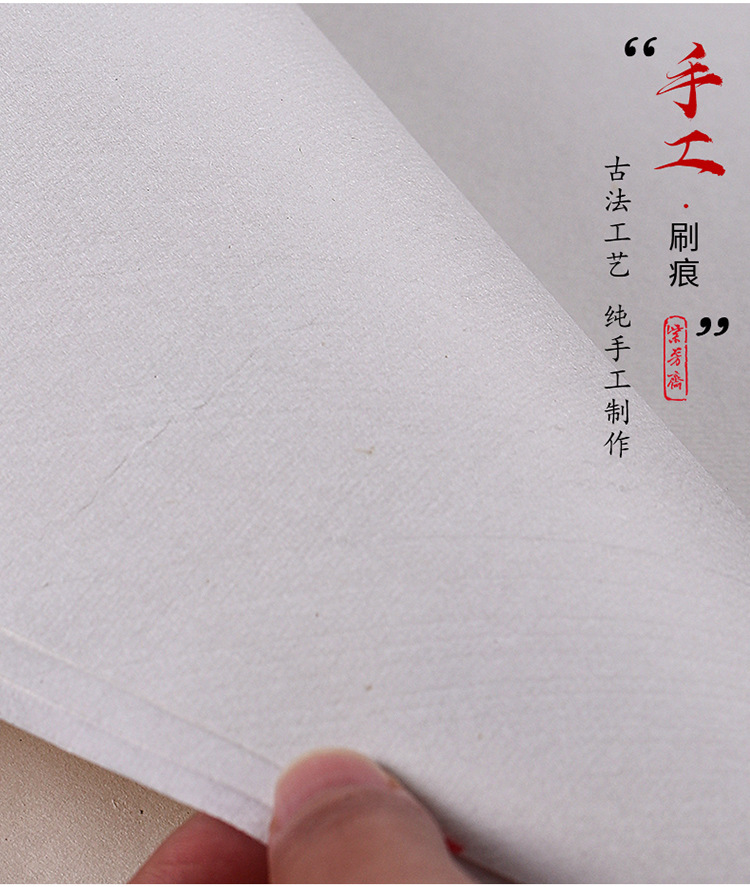 “手工·刷痕”
紫芳斋
古法工艺 纯手工制作